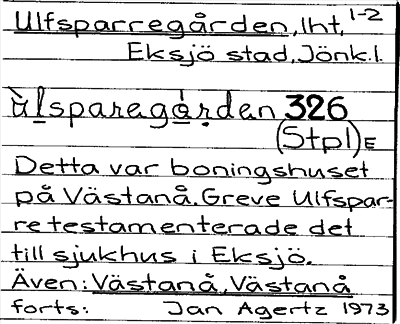 Ulfsparregården, lht, 1-2
Eksjö stad, Jönk. l.
ùlsparagárden 326
(Stpl) E
Detta var boningshuset
på Västanå. Greve Ulfspar-
re testamenterade det
till sjukhus i Eksjö.
Även: Västanå, Västanå
forts: Jan Agertz 1973